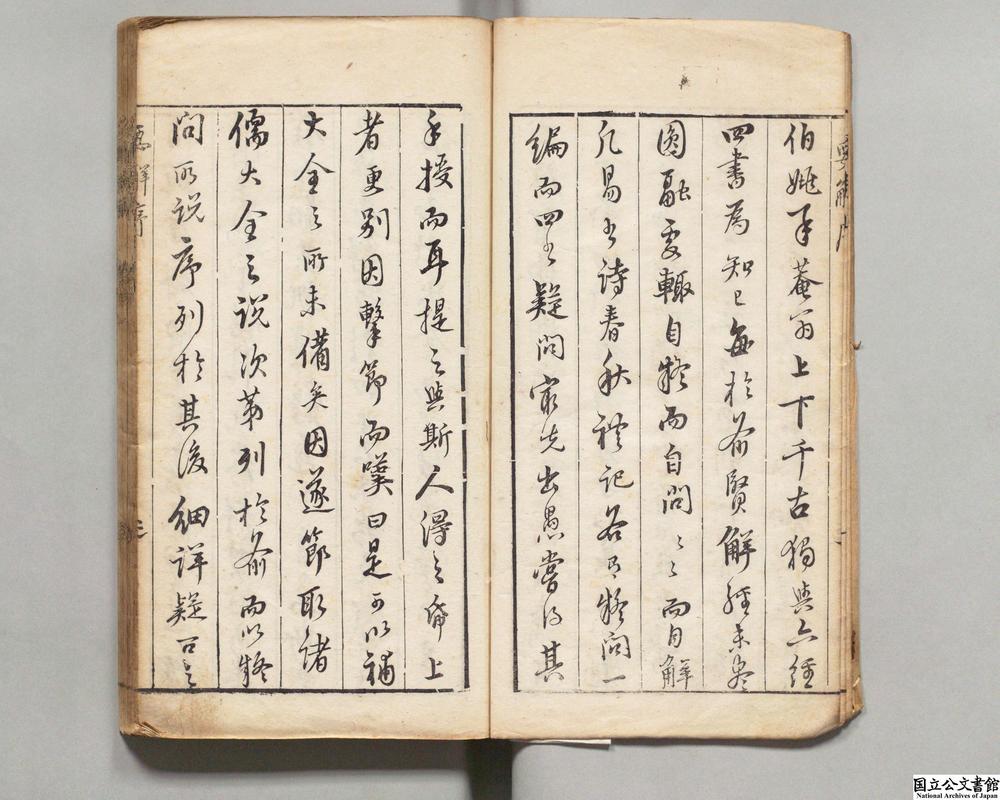 伯姚承菴翁上下千古獨與六經
四書爲知己每於前賢解經未盡
圓融處輒自疑而自問〻〻而自解
凡易書詩春秋禮記各有疑問一
編而四書疑問最先出愚嘗得其
手授而耳提之與斯人得之帋上
者更別因擊節而嘆曰是可以補
大全之所未備矣因遂節取諸
儒大全之說次第列於前而以疑
問所說序列於其後細詳疑
国立公文書館
National Archives of Japan